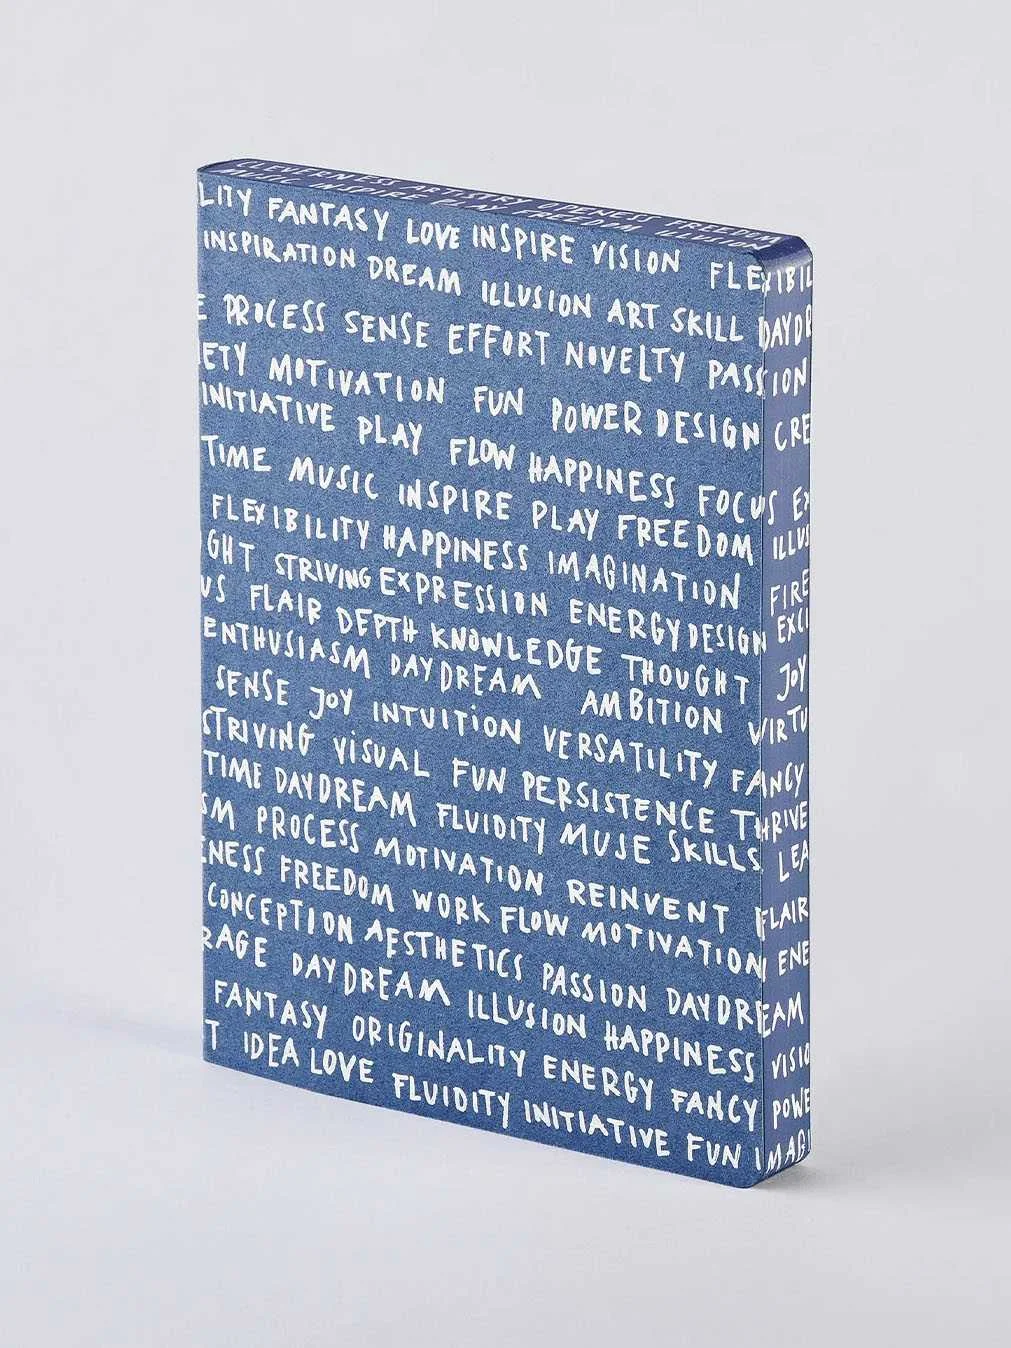 CLEVERNESS ARTISTRY OPENESS FREEDOM
MUSIC INSPIRE PLAY FREEDOM ILLUSION
LITY FANTASY LOVE INSPIRE VISION FLEXIBIL
INSPIRATION DREAM ILLUSION ART SKILL DAYDR
E PROCESS SENSE EFFORT NOVELTY PASSION
IETY MOTIVATION FUN POWER DESIGN CRE
INITIATIVE PLAY FLOW HAPPINESS FOCUS EX
TIME MUSIC INSPIRE PLAY FREEDOM ILLUS
FLEXIBILITY HAPPINESS IMAGINATION FIRE
GHT STRIVING EXPRESSION ENERGY DESIGN EXCI
US FLAIR DEPTH KNOWLEDGE THOUGHT JOY
ENTHUSIASM DAYDREAM AMBITION VIRTU
SENSE JOY INTUITION VERSATILITY FANCY
STRIVING VISUAL FUN PERSISTENCE THRIVE
TIME DAYDREAM FLUIDITY MUSE SKILLS LEA
SM PROCESS MOTIVATION REINVENT FLAIR
ENESS FREEDOM WORK FLOW MOTIVATION ENE
CONCEPTION AESTHETICS PASSION DAYDREAM
RAGE DAYDREAM ILLUSION HAPPINESS VISIO
FANTASY ORIGINALITY ENERGY FANCY POWE
T IDEA LOVE FLUIDITY INITIATIVE FUN IMAGI